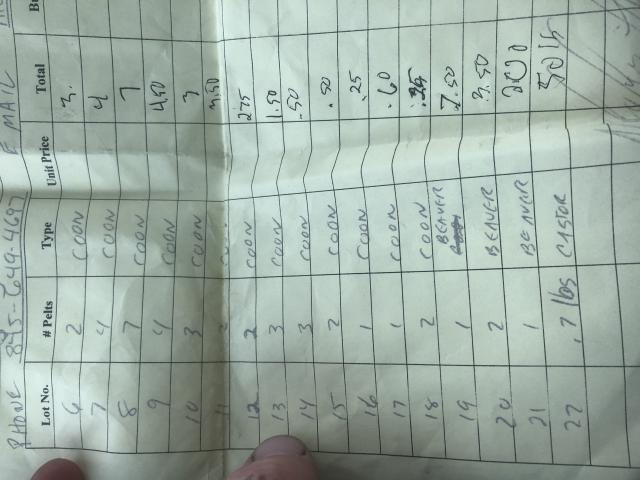 PHONE 845-649-4697 E MAIL
Lot No. # Pelts Type Unit Price Total
6 2 COON 3.
7 4 COON 4
8 7 COON 7
9 4 COON 4.50
10 3 COON 3
11 3.50
12 2 COON 2.75
13 3 COON 1.50
14 3 COON .50
15 2 COON .50
16 1 COON .25
17 1 COON .60
18 2 COON .25
19 1 BEAVER 7.50
20 2 BEAVER 3.50
21 1 BEAVER
22 .7 lbs CASTOR